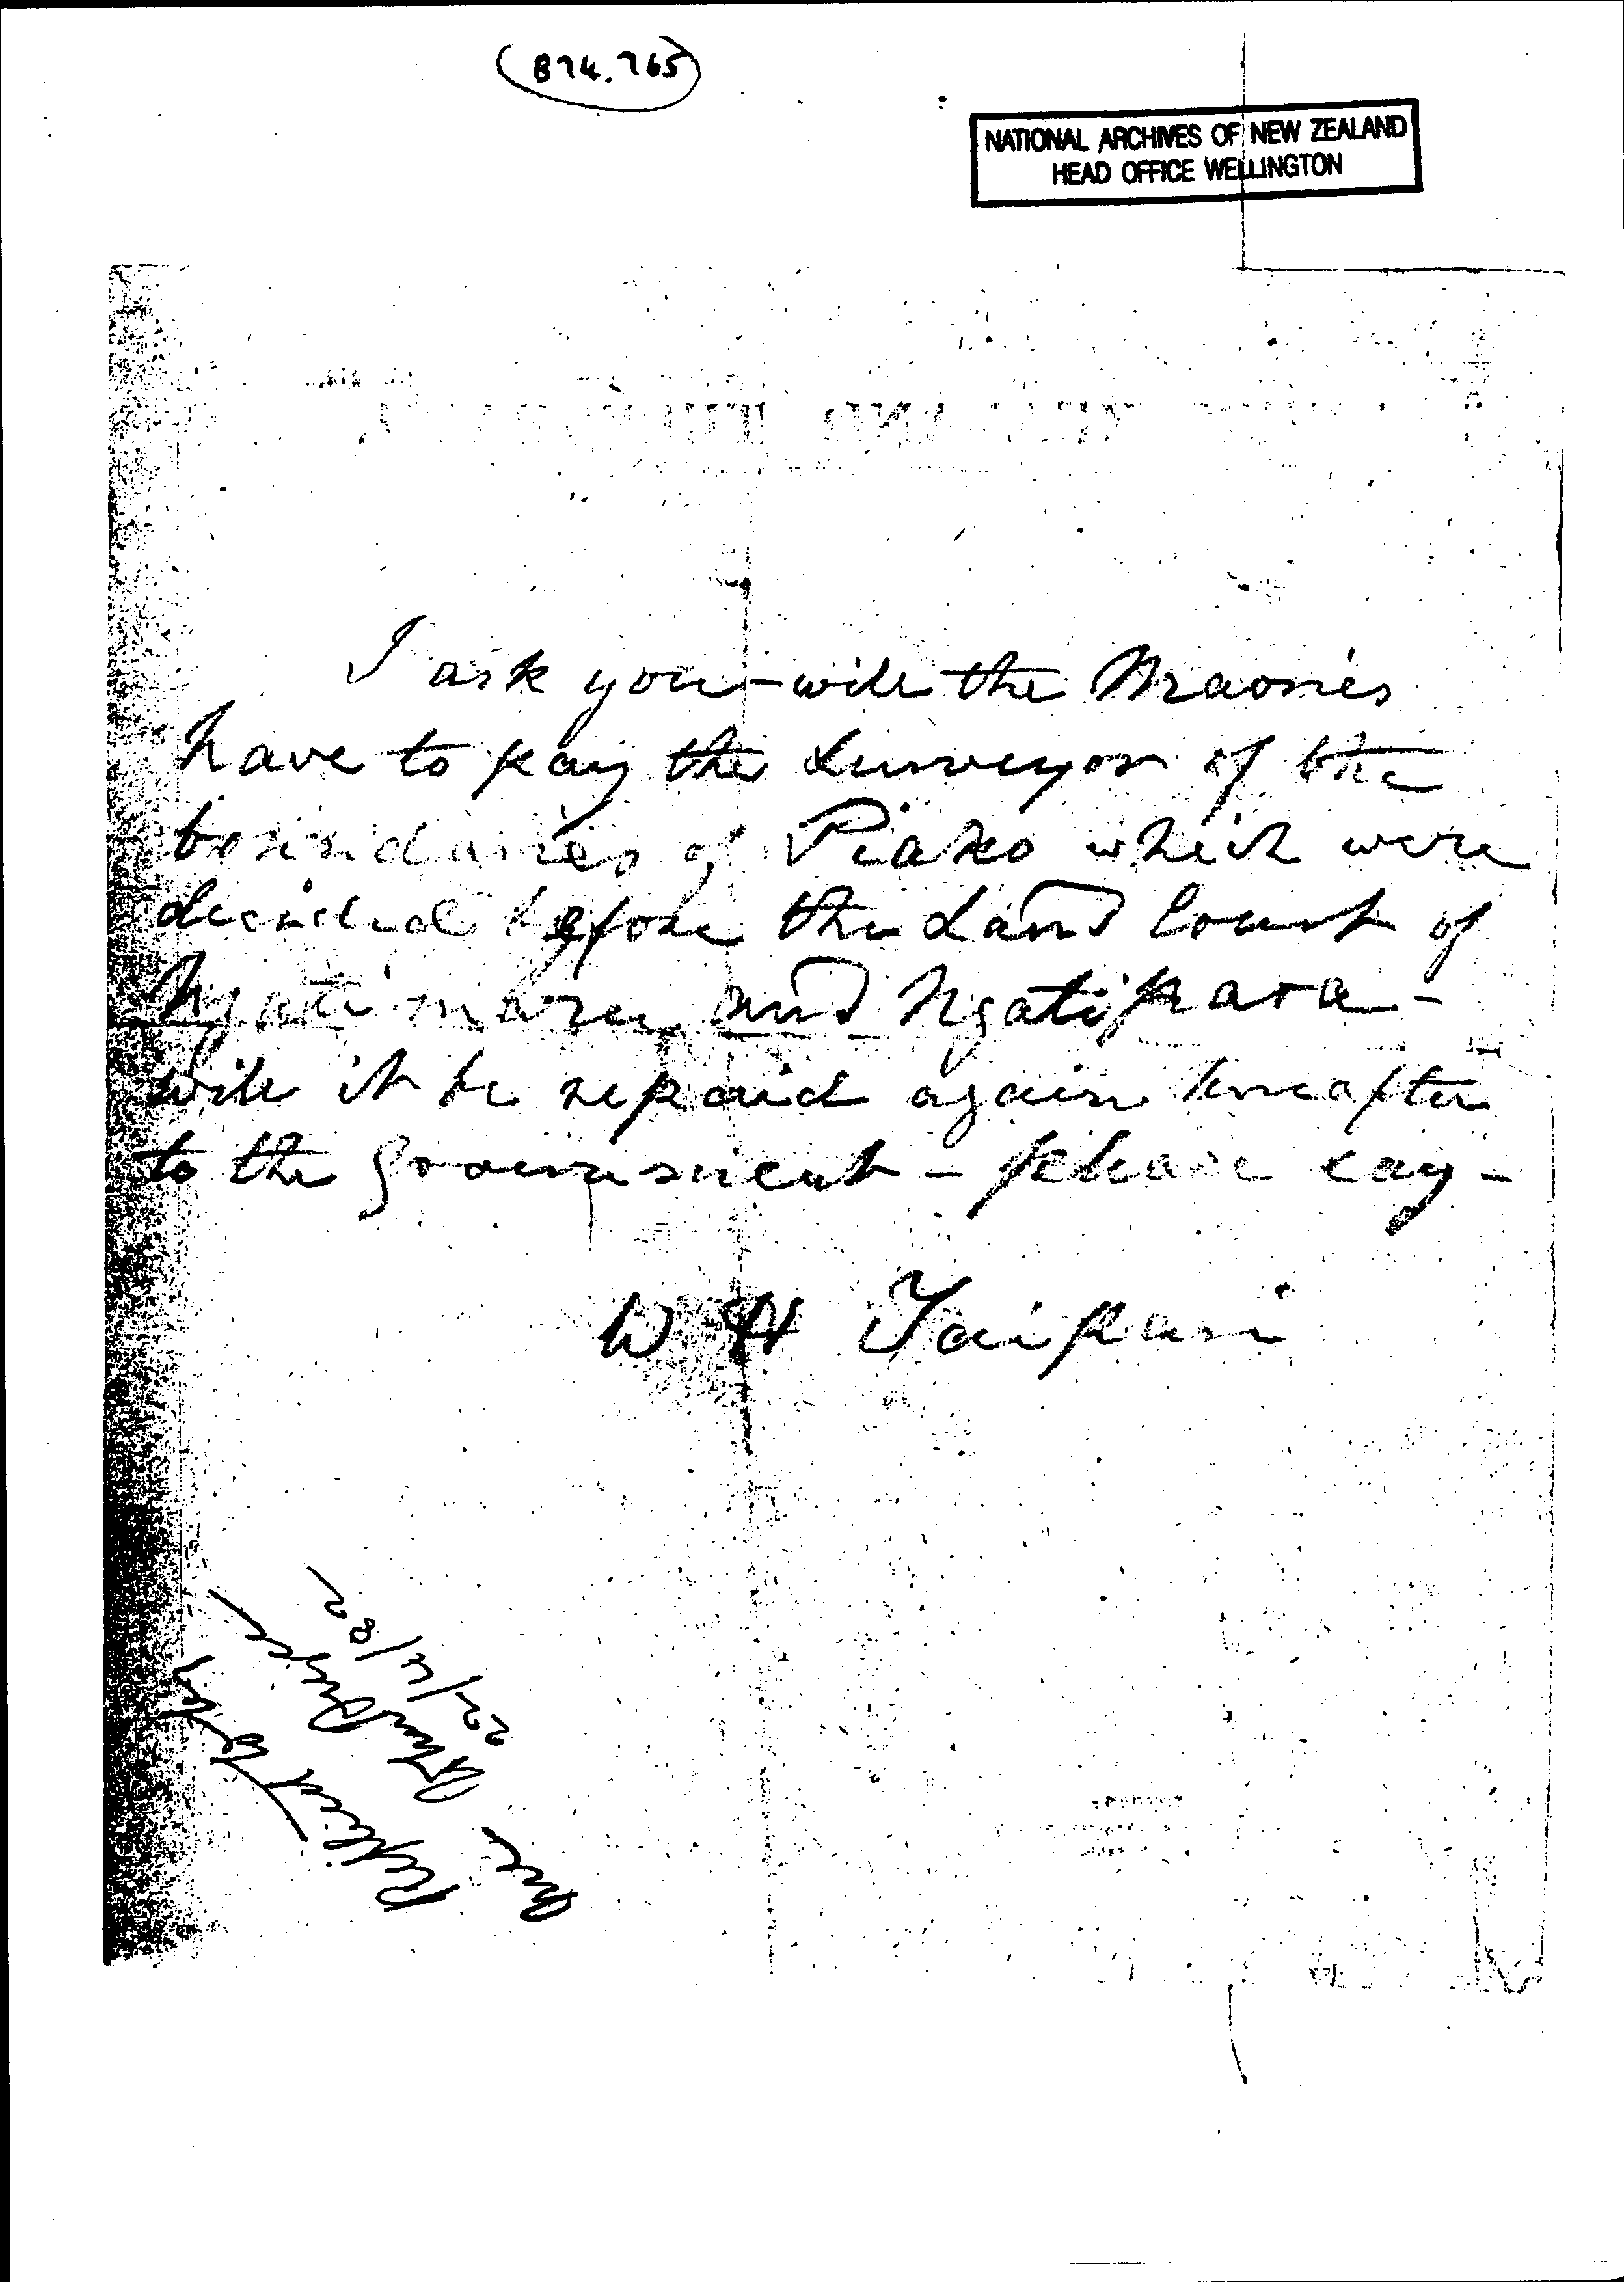 B74.765
NATIONAL ARCHIVES OF NEW ZEALAND
HEAD OFFICE WELLINGTON
I ask you - will the Maories
have to pay the Surveyor of the
boundaries of Piako which were
decided before the Land Court of
Ngatimaru and Ngatipaoa -
will it be repaid again hereafter
to the Government - please say -
W H Taipari
Replied
22/4/82